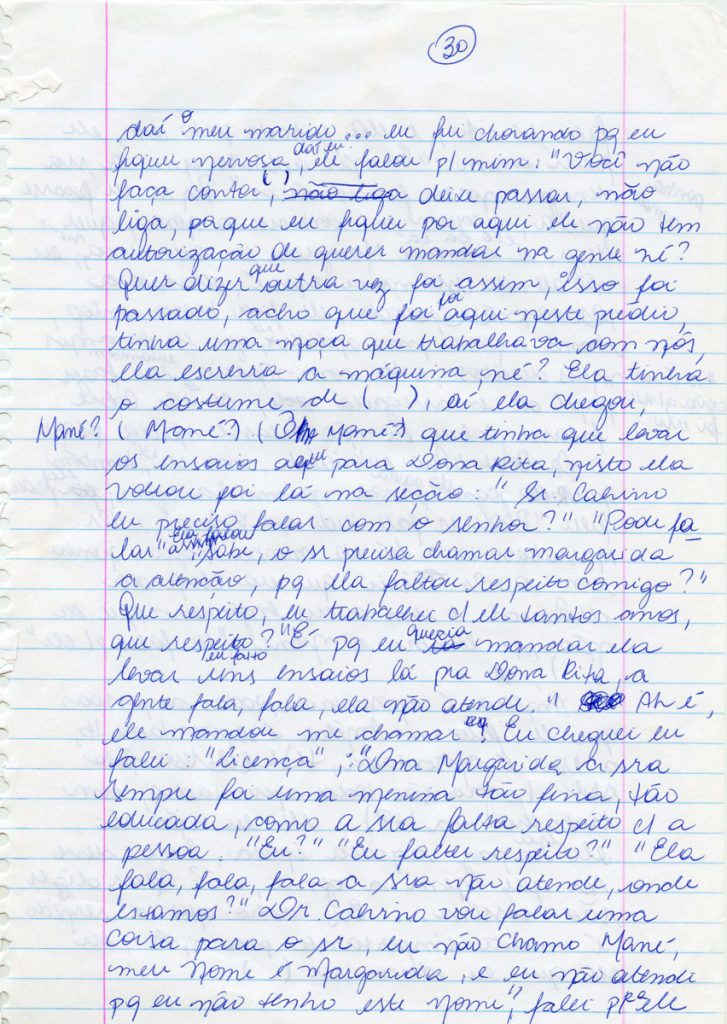 30
daí o meu marido... eu fui chorando pq eu
fiquei nervosa, daí eu ele falou p/ mim: "Você não
faça conta, ( ) não liga deixe passar, não
liga, pq que eu fiquei por aqui ele não tem
autorização de querer mandar na gente né?
Quer dizer que outra vez foi assim, isso foi
passado, acho que foi foi aqui neste prédio,
tinha uma moça que trabalhava com nós,
ela escrevia a máquina, né? Ela tinha
o costume de ( ), aí ela chegou,
Mamé? (Mamé?) ( Mamé?) que tinha que levar
os ensaios aqui para Dona Rita, nisto ela
voltou foi lá na seção: "Sr. Calvino
eu preciso falar com o senhor?" "Pode fa
lar" Ela falou assim, "Sabe, o sr precisa chamar margarida
a atenção, pq ela faltou respeito comigo?"
Que respeito, eu trabalhei c/ ele tantos anos,
que respeito? "É pq eu queria mandar ela
levar uns eu falo ensaios lá pra Dona Rita, a
gente fala, fala, ela não atende." Ah é,
ele mandou me chamar"? Eu cheguei eu
falei: "Licença",: "Dona Margarida, a sra
sempre foi uma menina tão fina, tão
educada, como a sra falta respeito c/ a
pessoa. "Eu?" "Eu faltei respeito?" "Ela
fala, fala, fala a sra não atende, onde
estamos?" Dr. Calvino vou falar uma
coisa para o sr, eu não chamo Mamé,
meu nome é Margarida, e eu não atendi
pq eu não tenho este nome", falei p/ ele